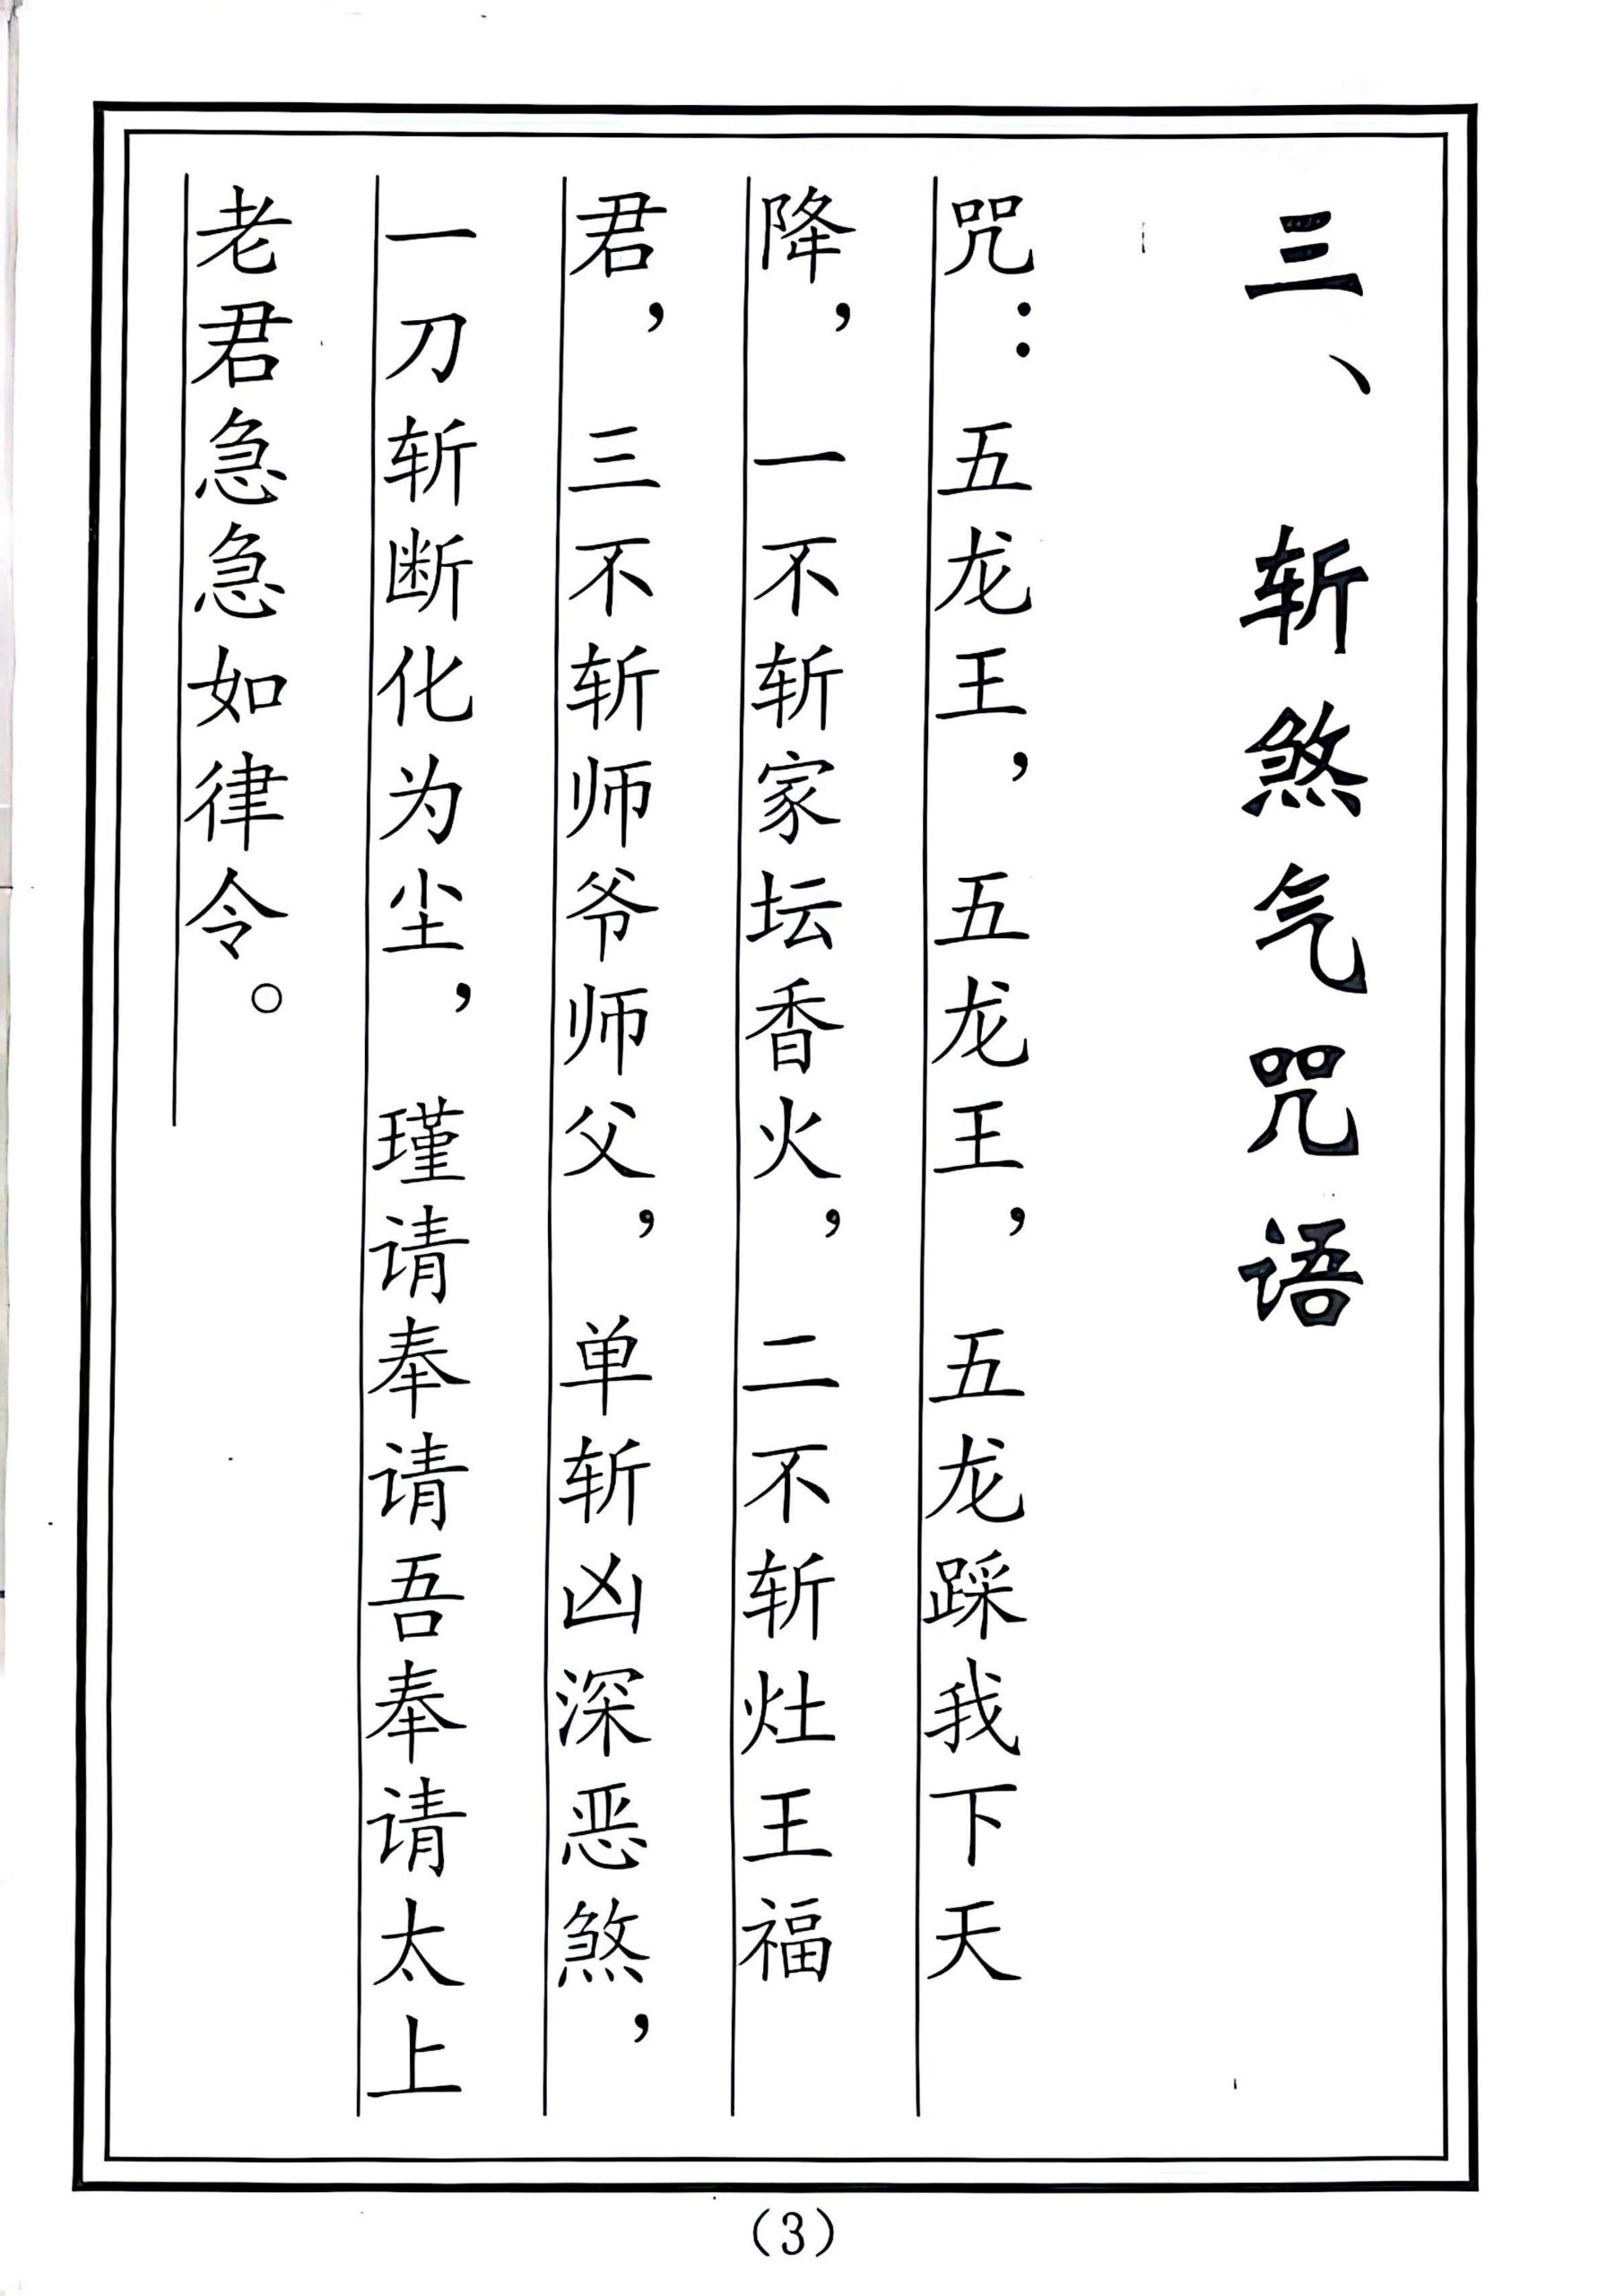 三、斩煞气咒语
咒：五龙王，五龙王，五龙踩我下天
降，一不斩家坛香火，二不斩灶王福
君，三不斩师爷师父，单斩凶深恶煞，
一刀斩断化为尘，瑾请奉请吾奉请太上
老君急急如律令。
（3）